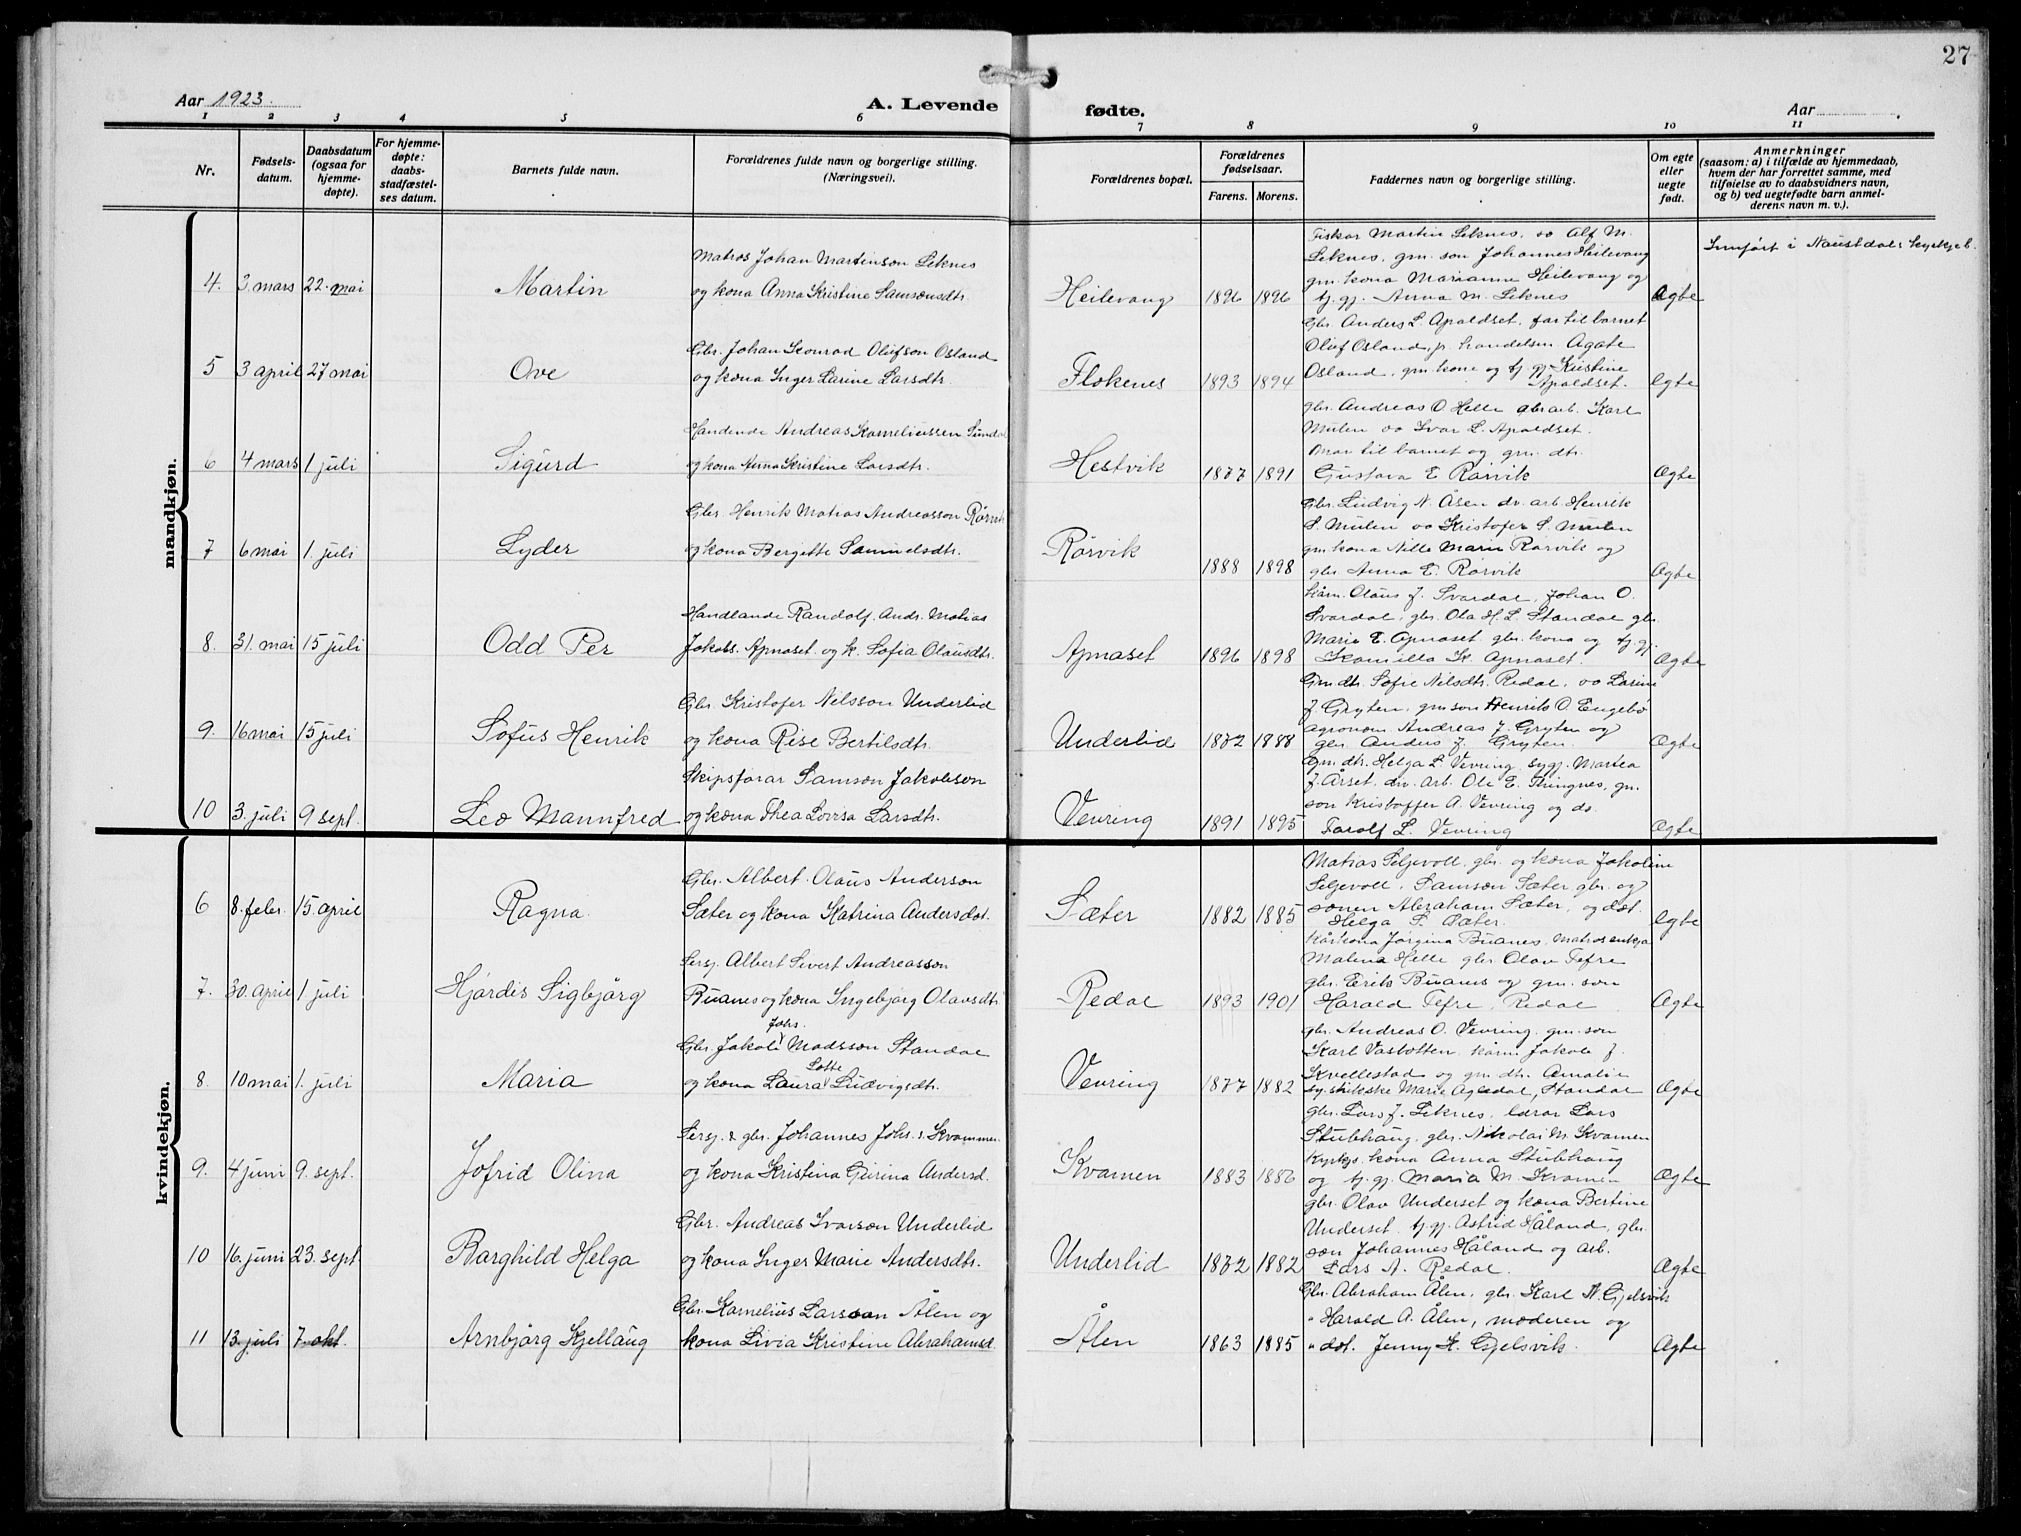 27
Aar 1923.
A. Levende fødte.
Aar
1 2 3 4 5 6 7 8 9 10 11
Nr.
Fødselsdatum.
Daabsdatum (ogsaa for hjemmedøpte).
For hjemmedøpte: daabsstadfæstelses datum.
Barnets fulde navn.
Forældrenes fulde navn og borgerlige stilling. (Næringsvei).
Forældrenes bopæl.
Forældrenes fødselsaar.
Farens. Morens.
Faddernes navn og borgerlige stilling.
Om egte eller uegte født.
Anmerkninger
(saasom: a) i tilfælde av hjemmedaab,
hvem der har forrettet samme, med
tilføielse av to daabsvidners navn,
og b) ved uegtefødte barn anmelderens navn m. v.).
mandkjøn.
4. 3 mars 22. mai Martin
Matros Johan Martinson Leknes
og kona Anna Kristine Samsonsdtr.
Heilevang 1896 1896
Fiskar Martin Leknes, oo Alf M.
Leknes, gm. son Johannes Heilevang
gm. kona Marianne Heilevang og
tj. gj. Anna M. Leknes
Ægte
Innført i Naustdals kyrkjeb.
5 3 april 27 mai Ove
Gbr. Johan Konrad Olufson Osland
og kona Inger Larine Larsdtr.
Flokenes 1893 1894
Gbr. Anders L. Apaldset, far til barnet
Oluf Osland, p. handelsm. Agate
Osland, gm. kone og tj. gj. Kristine
Apaldset.
Egte
6 4 mars 1 juli Sigurd
Handlende Andreas Korneliussen Sundal
og kona Anna Kristine Larsdtr.
Hestvik 1877 1891
gbr. Andreas O. Helle gbr. arb. Karl
Mulen oo Ivar L. Apaldset.
Mor til barnet og gm. dtr.
Gustava E. Rørvik
Ægte
7 6 mai 1. juli Lyder
Gbr. Henrik Matias Andreasson Rørvik
og kona Bergitte Samuelsdtr.
Rørvik 1888 1898
Gbr. Ludvig N. Åsen dr. arb. Henrik
S. Mulen oo Kristofer S. Mulen
gm. kona Nille Marie Rørvik og
gbr. Anna E. Rørvik
Ægte
8. 31. mai 15 juli Odd Per
Handlande Randolf Andr. Matias
Jakobs. Apnaset og k. Sofia Olausdtr.
Apnaset 1896 1898
kårm. Olaus J. Svardal, Johan O.
Svardal, gbr. Ola H. L. Standal gbr.
Marie E. Apnaset gbr. kona og tj. gj.
Kamilla K. Apnaset.
Ægte
9. 16 mai 15 juli Sofus Henrik
Gbr. Kristofer Nilsson Underlid
og kona Rise Bertilsdtr.
Underlid 1872 1888
Gm dtr. Sofie Nilsdtr. Redal, oo Larine
J. Gryten, gm. son Henrik O. Engebø
agronom Andreas J. Gryten og
gbr. Anders J. Gryten.
Ægte
10 3. juli 9 sept. Leo Mannfred
Skipsførar Samson Jakobson
og kona Thea Lovisa Larsdtr.
Vevring 1891 1895
Gm. dtr. Helga L. Vevring, sygj. Martea
J. Årset, dr. arb. Ole E. Thingnes, gm.
son Kristoffer A. Vevring og do.
Torolf L. Vevring
Ægte
kvindekjøn.
6 8. febr. 15. april Ragna.
Gbr. Albert Olaus Anderson
Sæter og kona Katrina Andersdot.
Sæter 1882 1885
Matias Seljevoll, gbr. og kona Jakobine
Seljevoll, Samson Sæter gbr. og
sønen Abraham Sæter, og dot.
Helga S. Sæter.
Egte
7. 30. april 1 juli Hjørdis Sigbjørg
Sersj. Albert Sivert Andreasson
Buanes og kona Ingebjørg Olavsdtr.
Redal 1893 1901
Kårkona Jørgina Buanes, Matros enkja
Malena Helle gbr. Olav Tefre
gbr. Erik Buanes og gm. son
Harald Tefre, Redal
Ægte
8. 10 mai 1. juli Maria
Johs.
Gbr. Jakob Madsson Standal
Lotte
og kona Laura Ludvigsdtr.
Vevring 1877 1882
gbr. Andreas O. Vevring, gm. son
Karl Vasbotten, kårm. Jakob J.
Kvellestad og gm. dtr. Amalie
syskikske Marie Agledal, Standal
Ægte
9. 4 juni 9. sept. Jofrid Olina
Sersj. & gbr. Johannes Johs. s. Kvammen
og kona Kristina Gurina Andersd.
Kvamen 1883 1886
gbr. Lars J. Leknes, lærar Lars
Stubhaug, gbr. Nikolai M. Kvamen
Kyrkjs. kona Anna Stubhaug
og tj. gj. Maria M. Kvamen
Ægte
10 16. juni 23. sept. Borghild Helga
Gbr. Andreas Ivarson Underlid
og kona Inger Marie Andersdtr.
Underlid 1872 1882
gbr. Olav Underset og kona Bertine
Underset, tj. gj. Astrid Håland, gbr.
son Johannes Håland og arb.
Lars A. Redal.
Ægte
11 13 juli 7. okt. Arnbjørg Kjellaug
Gbr. Kornelius Larsson Ålen og
kona Livia Kristine Abrahamsd.
Ålen 1863 1885
Gbr. Abraham Ålen, gbr. Karl N. Gjelsvik
" Harald A. Ålen, moderen og
" dot. Jenny K. Gjelsvik.
Ægte